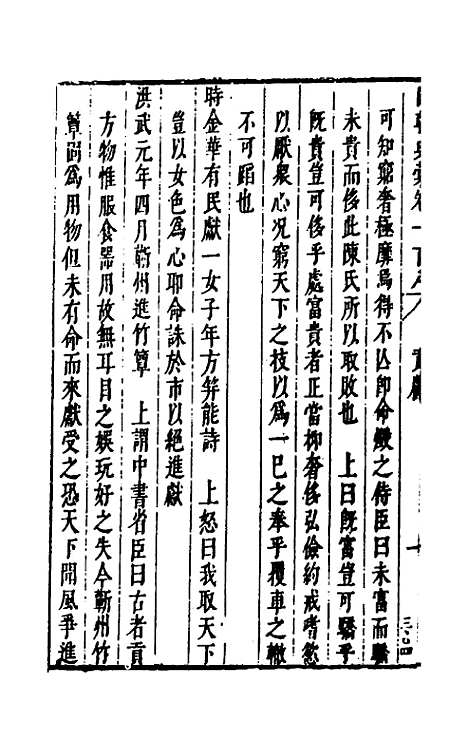 可知窮奢極靡焉得不亾卽命燬之侍臣曰未富而驕
未貴而侈此陳氏所以取敗也　上曰旣富豈可驕乎
旣貴豈可侈乎處富貴者正當抑奢侈弘儉約戒嗜慾
以厭衆心况窮天下之技以爲一已之奉乎覆車之轍
不可蹈也
時金華有民獻一女子年方笄能詩　上怒曰我取天下
豈以女色爲心耶命誅於市以絕進獻
洪武元年四月蘄州進竹簟　上謂中書省臣曰古者貢
方物惟服食器用故無耳目之娛玩好之失今蘄州竹
簟固爲用物但未有命而來獻受之恐天下聞風爭進